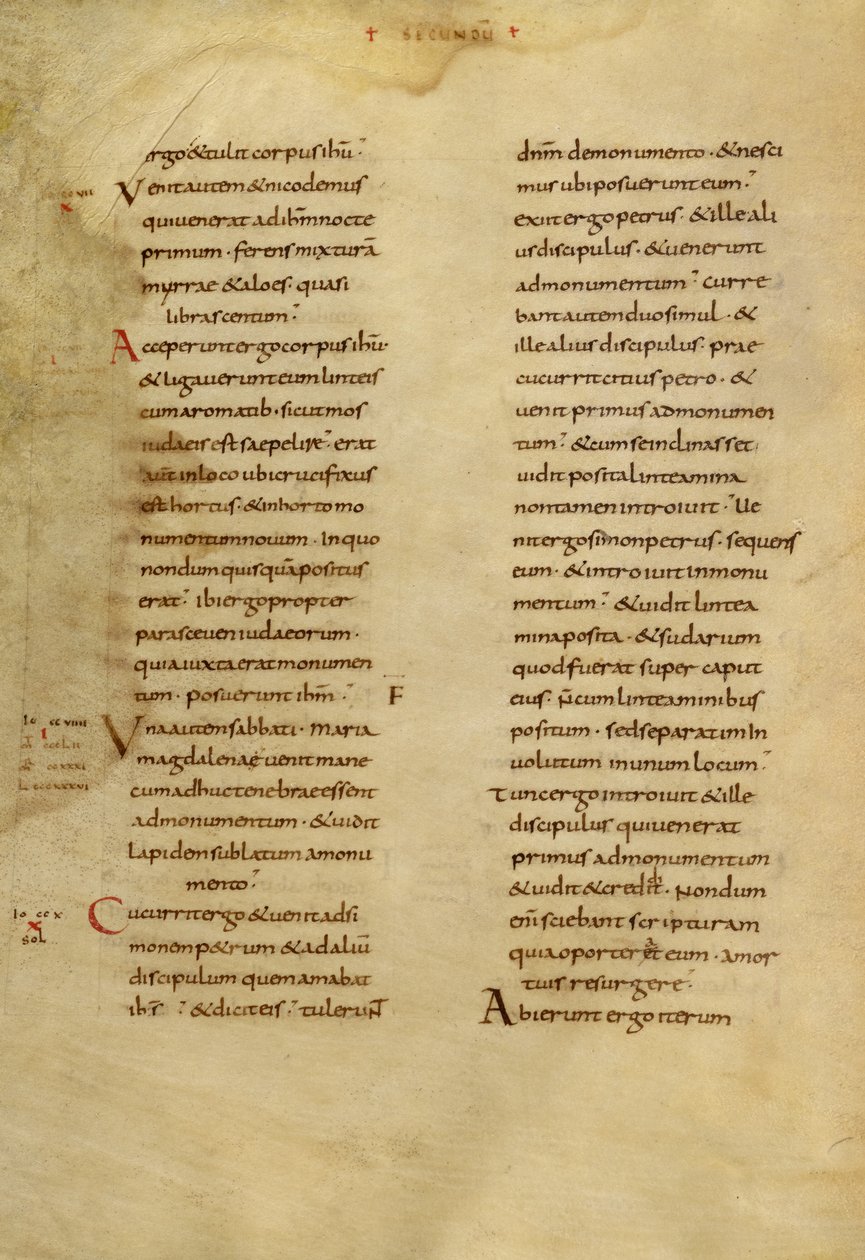 + SECUNDŪ +
ergo & tulit corpus ihū.
Venit autem & nicodemus
qui venerat ad ihm̄ nocte
primum. ferens mixturā
myrrae & aloes. quasi
libras centum.
Acceperunt ergo corpus ihū.
& ligaverunt eum linteis
cum aromatib. sicut mos
iudaeis est saepelire. erat
aut̄ in loco ubi crucifixus
est hortus. & in horto mo
numentum novum. In quo
nondum quisquā positus
erat. ibi ergo propter
parasceven iudaeorum.
quia iuxta erat monumen
tum. posuerunt ihm̄. F
Io ccviiii
I
Una autem sabbati. Maria
magdalenae venit mane
cum adhuc tenebrae essent
ad monumentum. & vidit
lapidem sublatum a monu
mento.
Io ccx
x
sol
Cucurrit ergo & venit ad si
monem p&rum & ad aliū
discipulum quem amabat
ihs̄. & dicit eis. tulerun̄t
dnm̄ de monumento. & nesci
mus ubi posuerunt eum.
exiit ergo petrus. & ille ali
us discipulus. & venerunt
ad monumentum. curre
bant autem duo simul. &
ille alius discipulus. prae
cucurrit citius petro. &
venit primus ad monumen
tum. & cum se inclinasset
vidit posita linteamina
non tamen introivit. Ve
nit ergo simon petrus. sequens
eum. & introivit in monu
mentum. & vidit lintea
mina posita. & sudarium
quod fuerat super caput
eius. n̄ cum linteaminibus
positum. sed separatim in
volutum in unum locum.
Tunc ergo introivit & ille
discipulus qui venerat
primus ad monumentum
& vidit & credidit. Nondum
enī sciebant scripturam
quia oporteret eum. a mor
tuis resurgere.
Abierunt ergo iterum